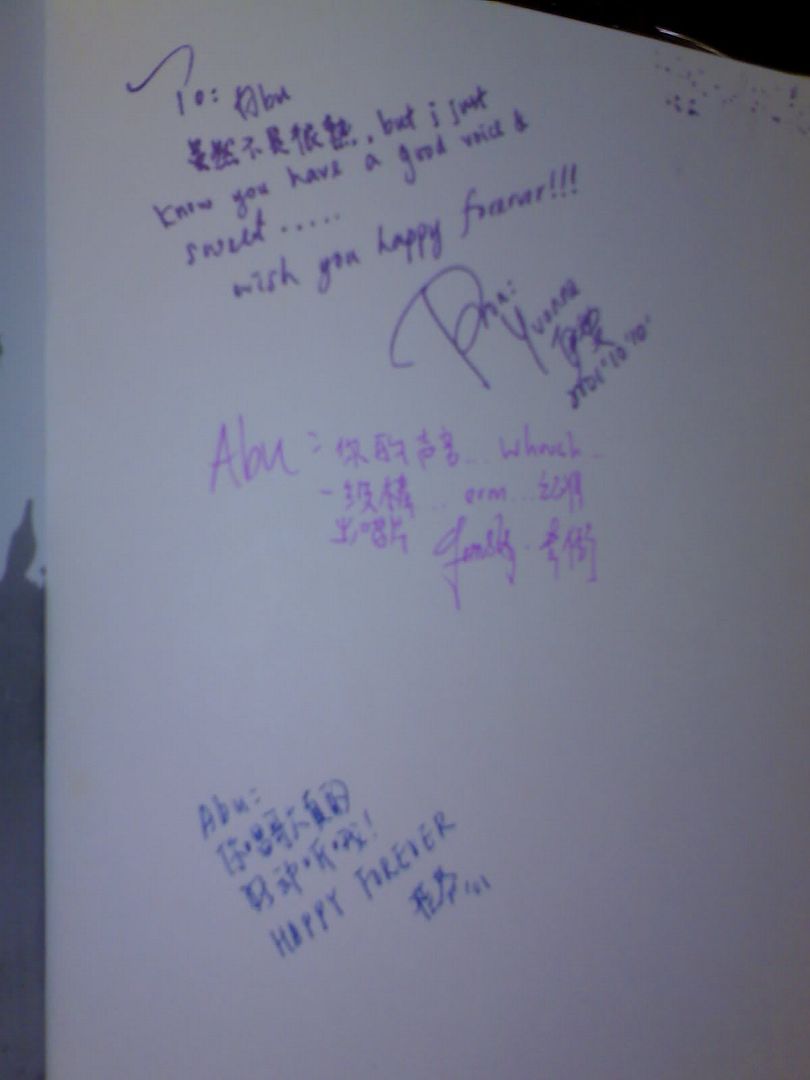 To: Abu
虽然不是很熟, but i just
know you have a good voice &
sweet .....
wish you happy forever!!!
Yvonne
Abu: 你的声音...
一级棒... erm...
出唱片
Abu:
你唱歌真的
好好听哦!
HAPPY FOREVER